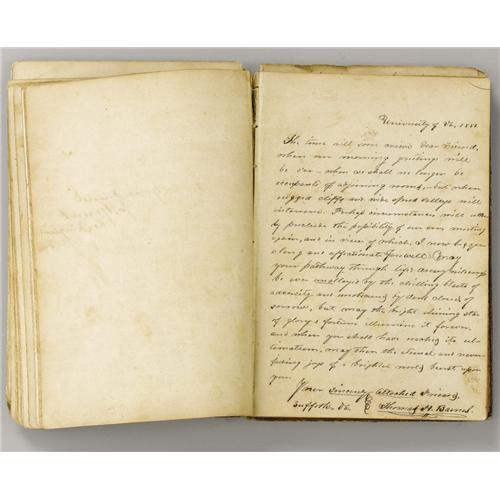 University of Va, 18
The time will soon arrive dear Friend,
when our morning greetings will
be o'er - when we shall no longer be
occupants of adjoining rooms, but when
rugged cliffs and wide spread valleys will
intervene. Perhaps circumstances will
by preclude the possibility of our ever meeting
again, and in view of which, I now bid you
a long and affectionate farewell. May
your pathway through life's dreary
be ever unalloyed by the chilling blasts of
adversity and unobscured by dark clouds of
sorrow, but may the bright shining star
of glory & fortune illumine it forever,
and when you shall have reached its cul
mination, may then the eternal and never
fading joys of a brighter world burst upon
you.
Your sincerely attached friend,
Suffolk, Va. Thomas H. Barnes.